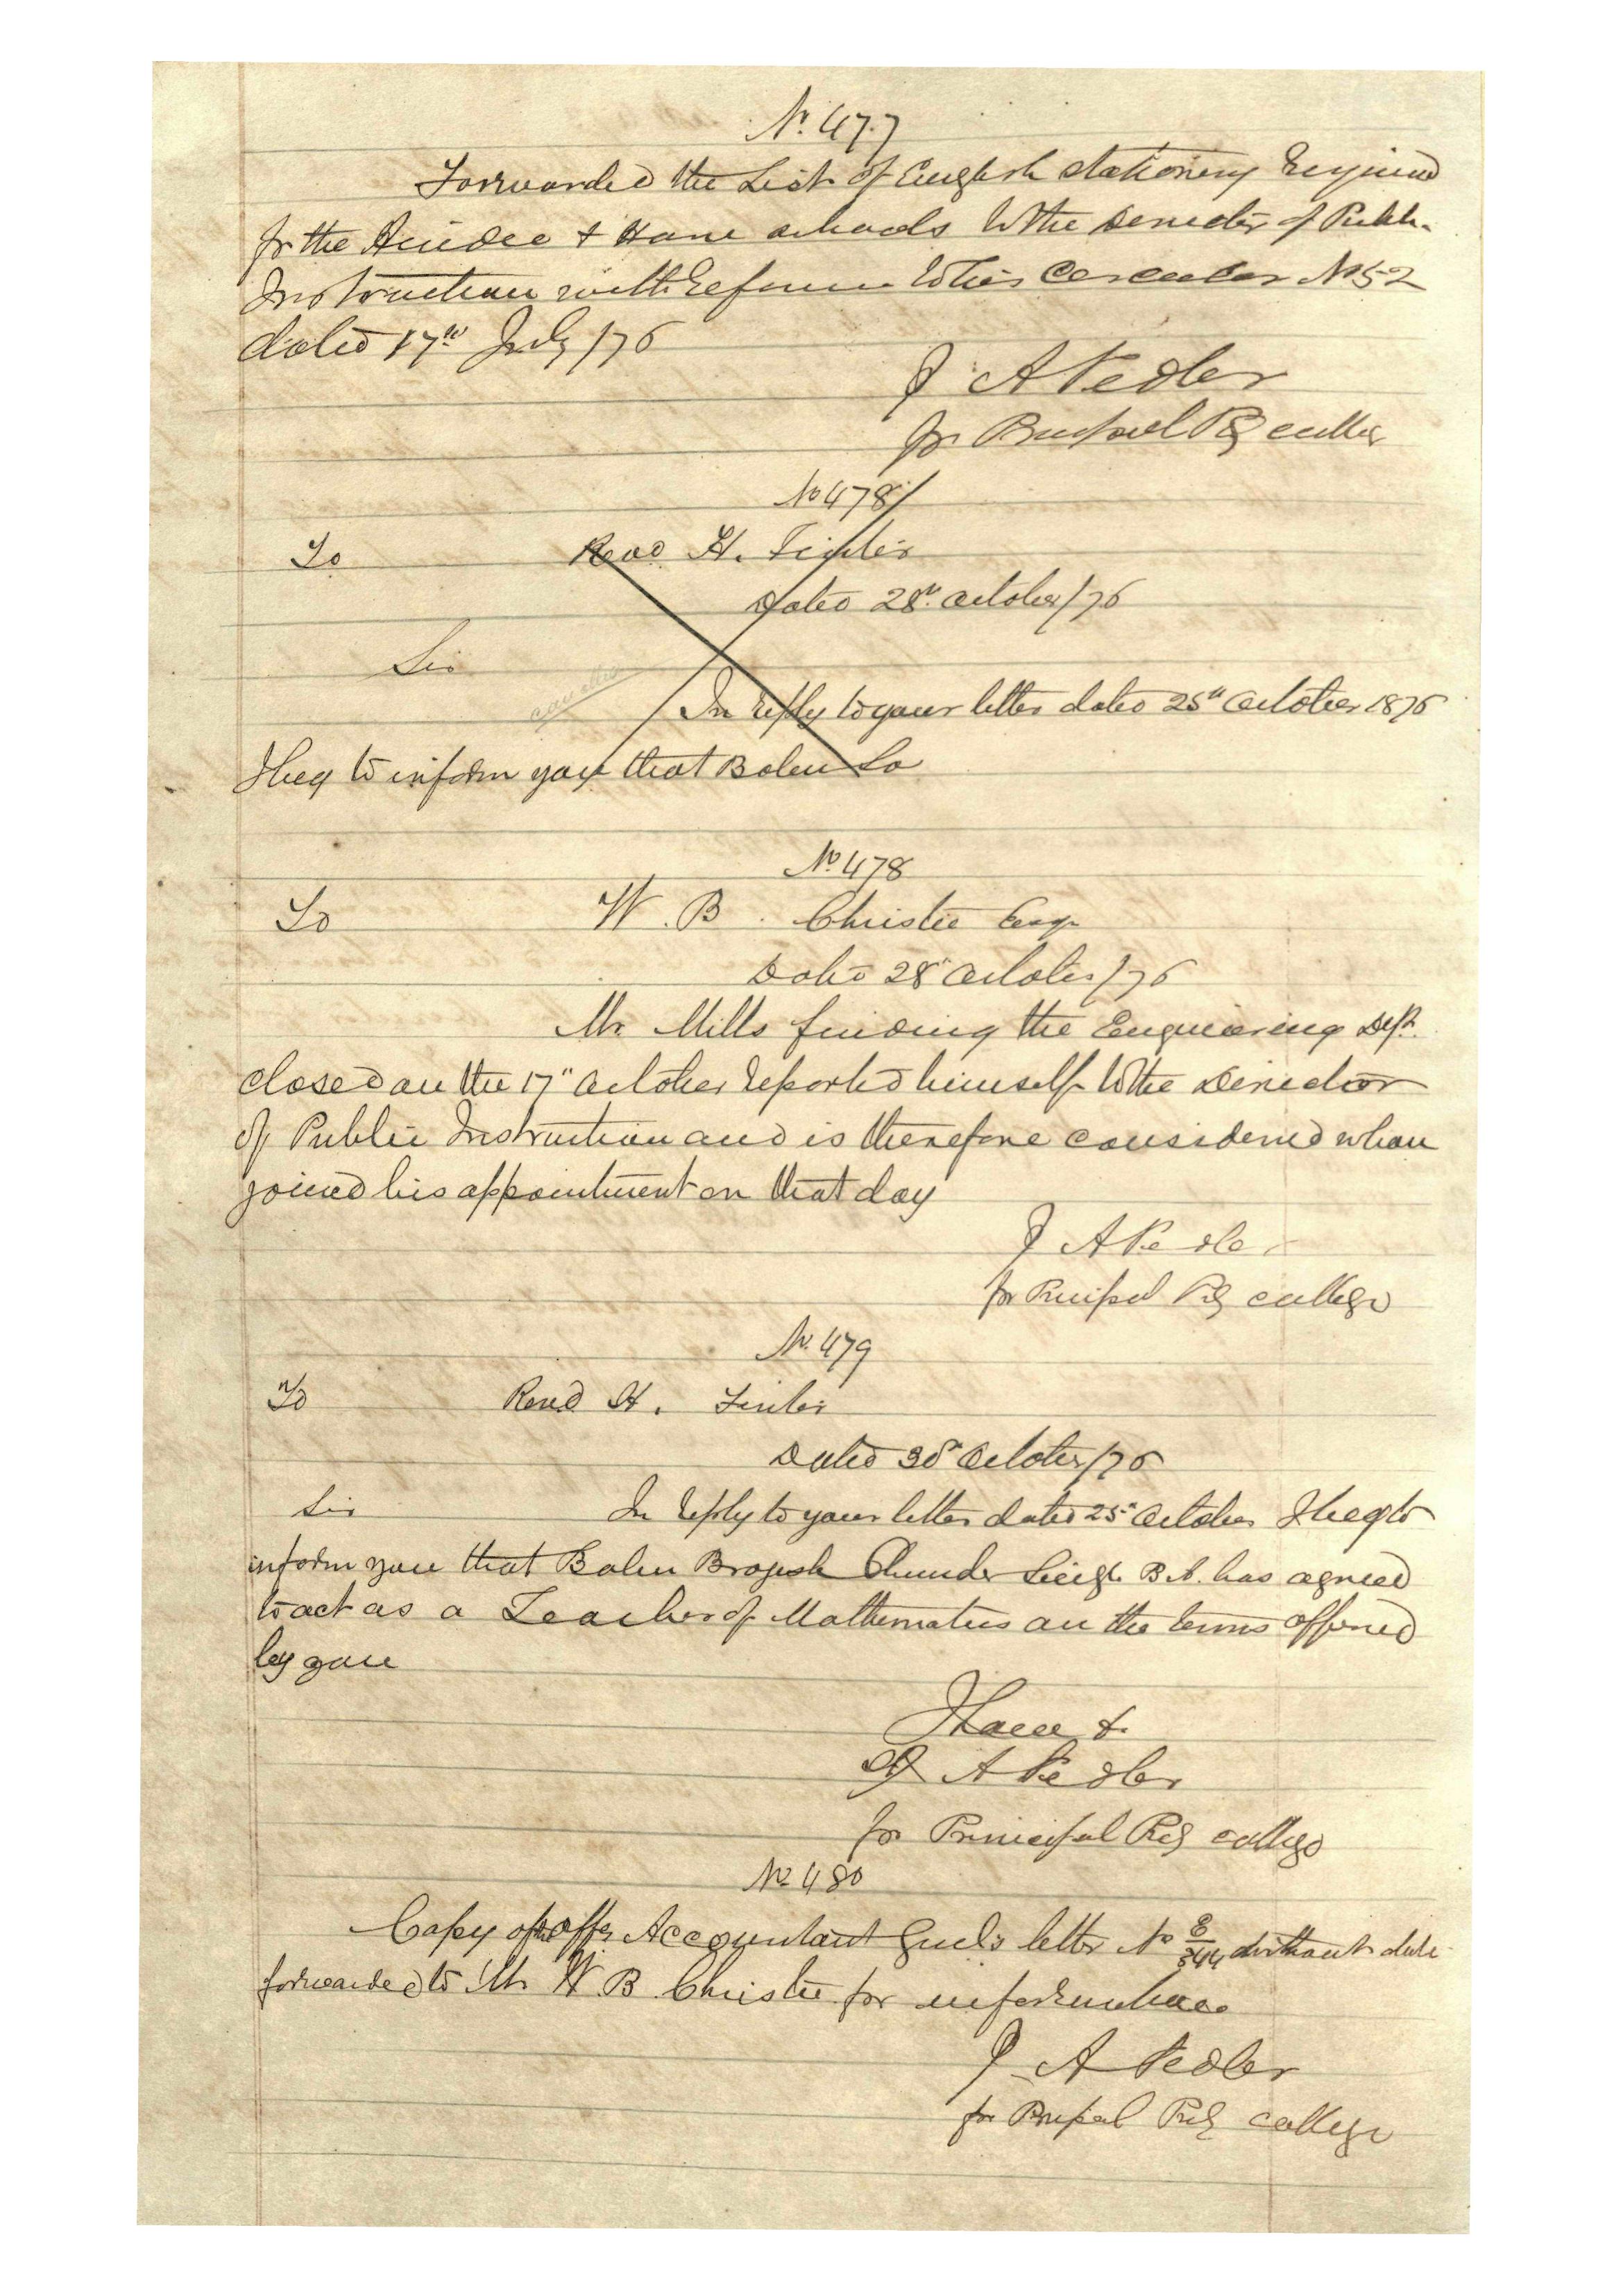 No. 477
Forwarded the List of English stationery required
for the Hindoo & Hare schools to the Director of Public
Instruction with reference to his Circular No 52
dated 17th July /76
A Pedler
for Principal Pres college
No 478
To Revd H.
Dated 28th October /76
Sir
cancelled
In reply to your letter dated 25th October 1876
I beg to inform you that Babu
No 478
To W. B. Christie Esqr
Dated 28th October /76
Mr. Mills finding the Engineering Dept.
closed on the 17th October reported himself to the Director
of Public Instruction and is therefore considered
joined his appointment on that day
A Pedler
for Principal Pres college
No. 479
To Revd H.
Dated October /76
Sir In reply to your letter dated 25th October I beg to
inform you that Babu Brojesh Chunder Singh B.A. has agreed
to act as a Teacher of Mathematics on the terms offered
by you
I have &
A Pedler
for Principal Pres college
No 480
Copy of Accountant Genl's letter No 8/344 without date
forwarded to Mr W. B. Christie for information
A Pedler
for Principal Pres college